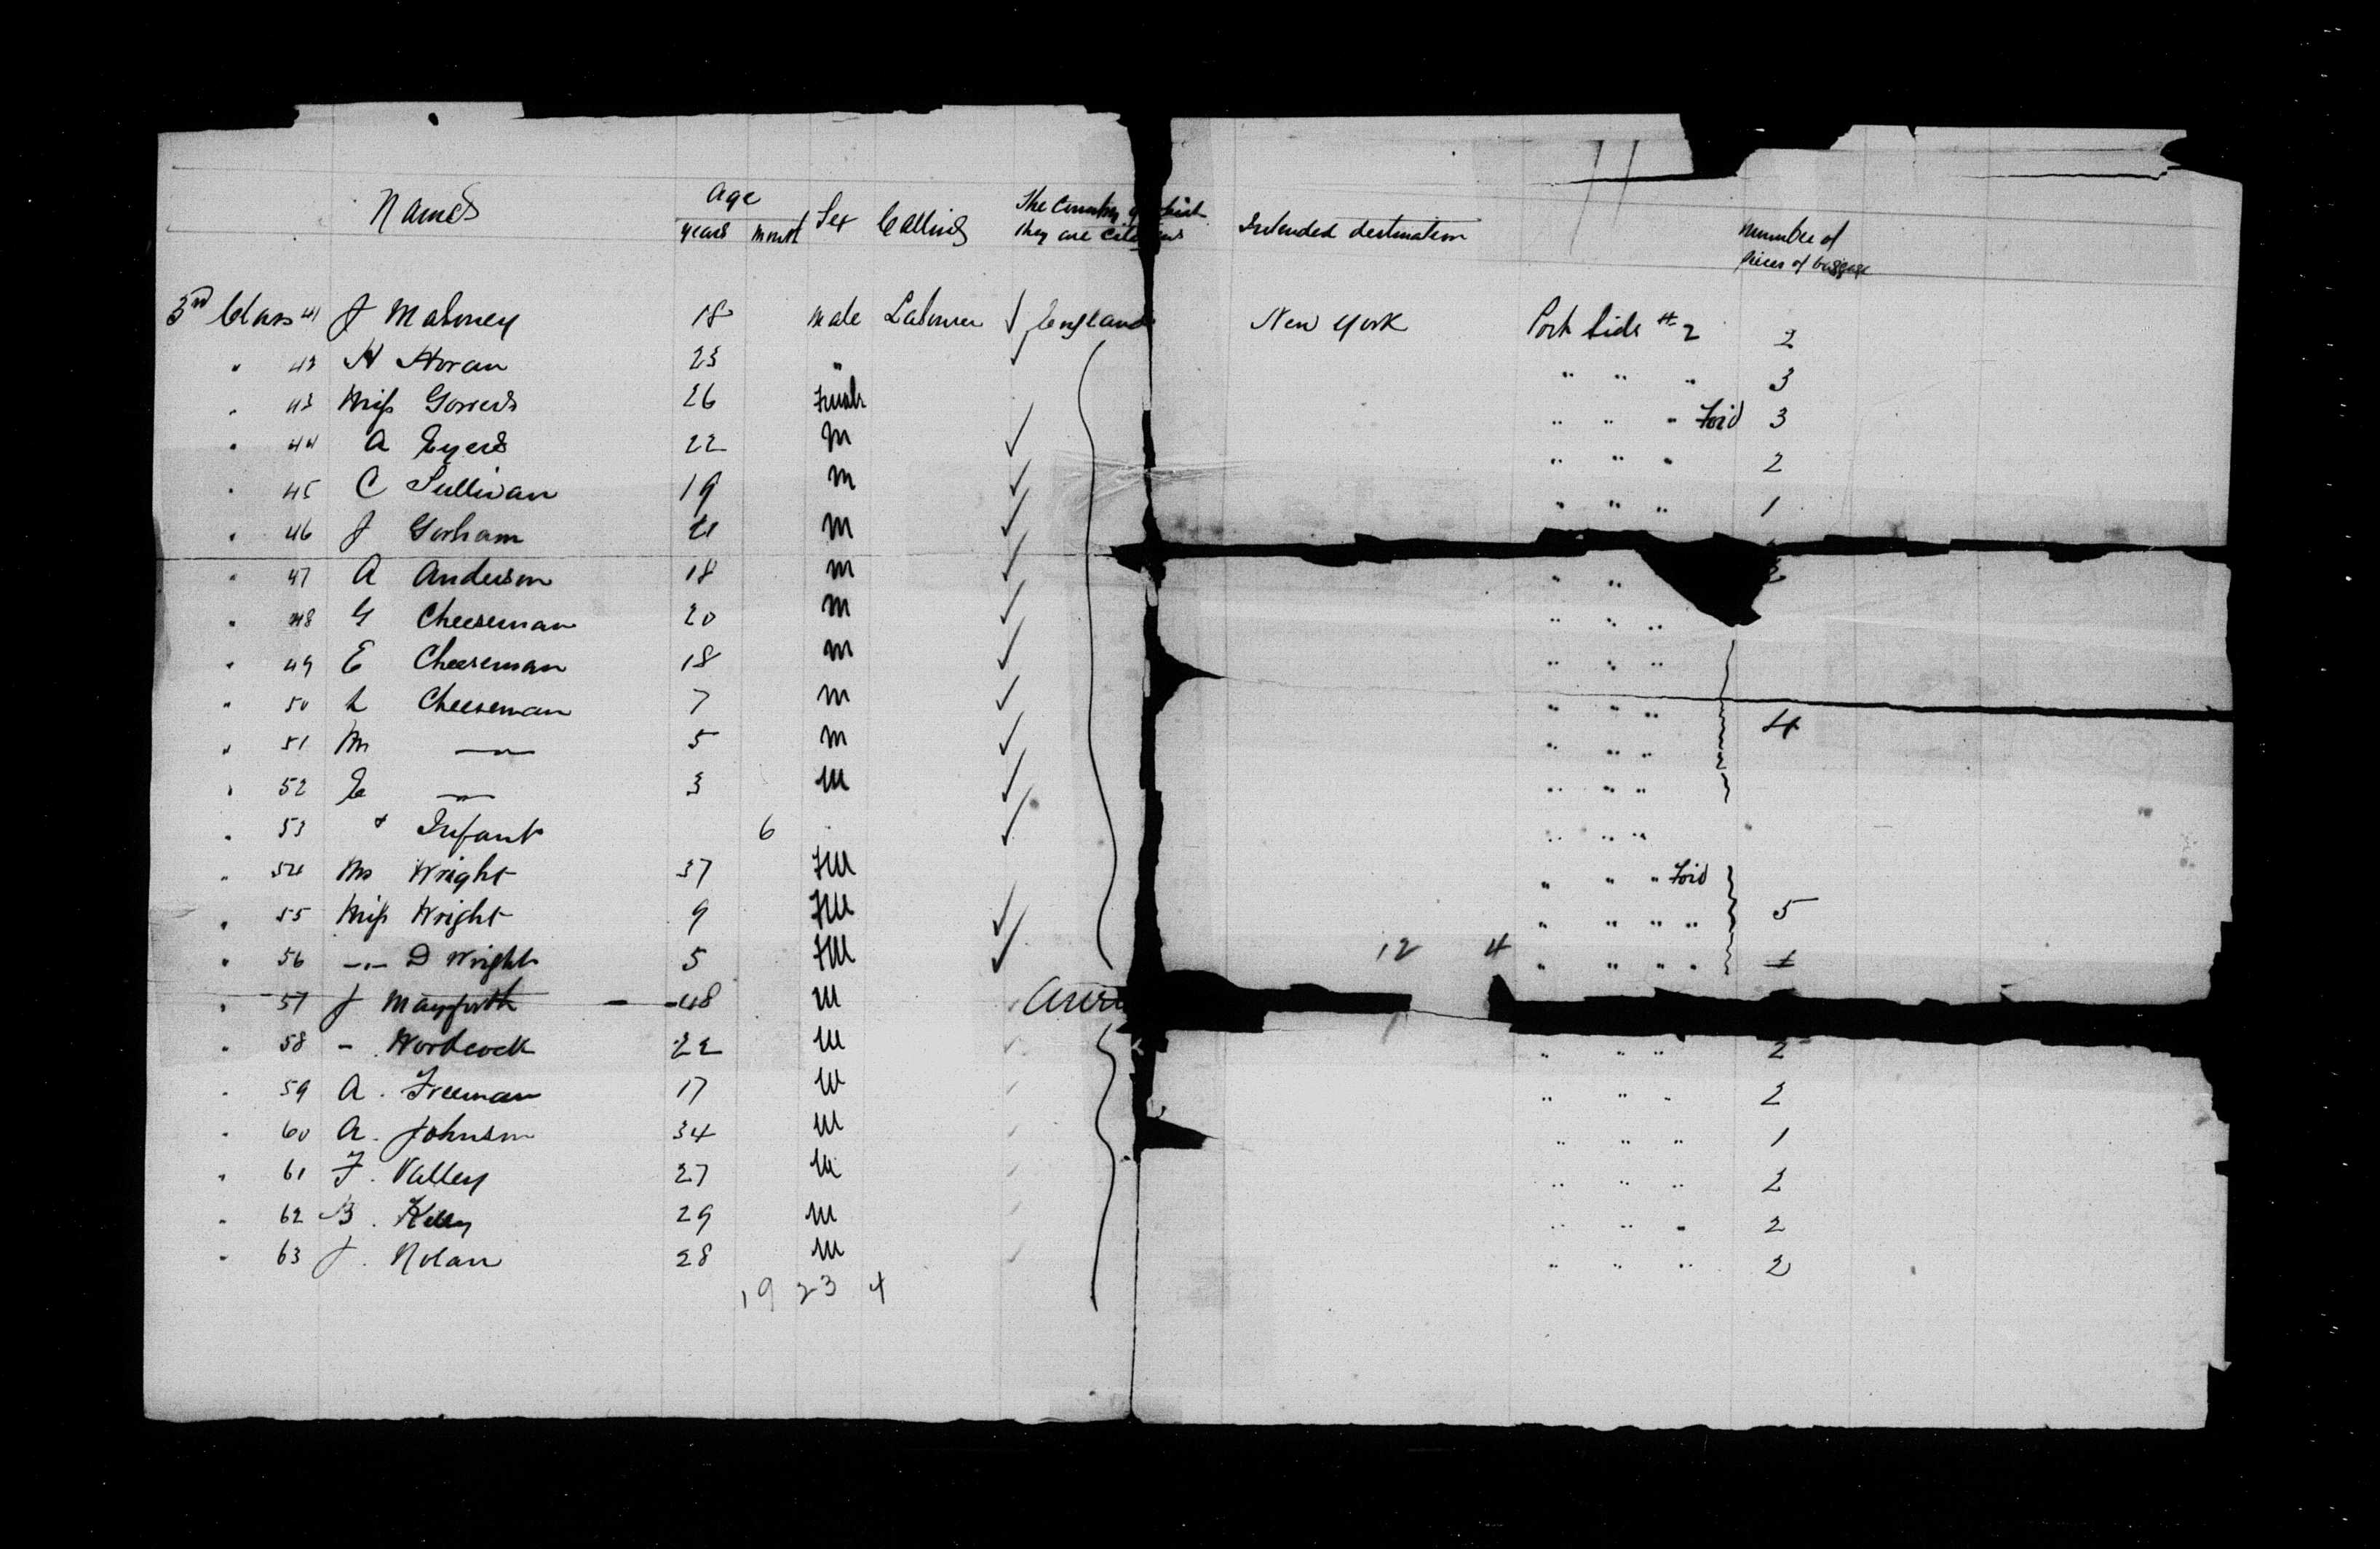 11
Names Age Sex Calling The Country of which Intended destination Number of
years month they are citizens pieces of baggage
3rd Class 41 J Mahoney 18 male Labourer ✓ England New York Port Side # 2 2
" 42 H Horan 23 " ✓ " " " 3
" 43 Miss 26 " " " Ford 3
" 44 A Eyers 22 M ✓ " " " 2
" 45 C Sullivan 19 M ✓ " " " 1
" 46 J Gorham 21 M ✓
" 47 A Anderson 18 M ✓ " "
" 48 G Cheeseman 20 M ✓ " " "
" 49 E Cheeseman 18 M ✓ " " "
" 50 L Cheeseman 7 M ✓ " " " 4
" 51 M —"— 5 M ✓ " " "
" 52 E —"— 3 M ✓ " " "
" 53 + Infant 6 ✓ " " "
" 54 Mrs Wright 37 FM " " " Ford
" 55 Miss Wright 9 FM ✓ " " " " 5
" 56 —"— D Wright 5 FM ✓ 12 4 " " " " 1
" 57 J 48 M
" 58 - 22 M " " " 2
" 59 A. Freeman 17 M " " " 2
" 60 A. Johnson 34 M " " " 1
" 61 F. Valley 27 M " " " 2
" 62 B. Kelly 29 M " " " 2
" 63 J. Nolan 28 M " " " 2
19 23 4